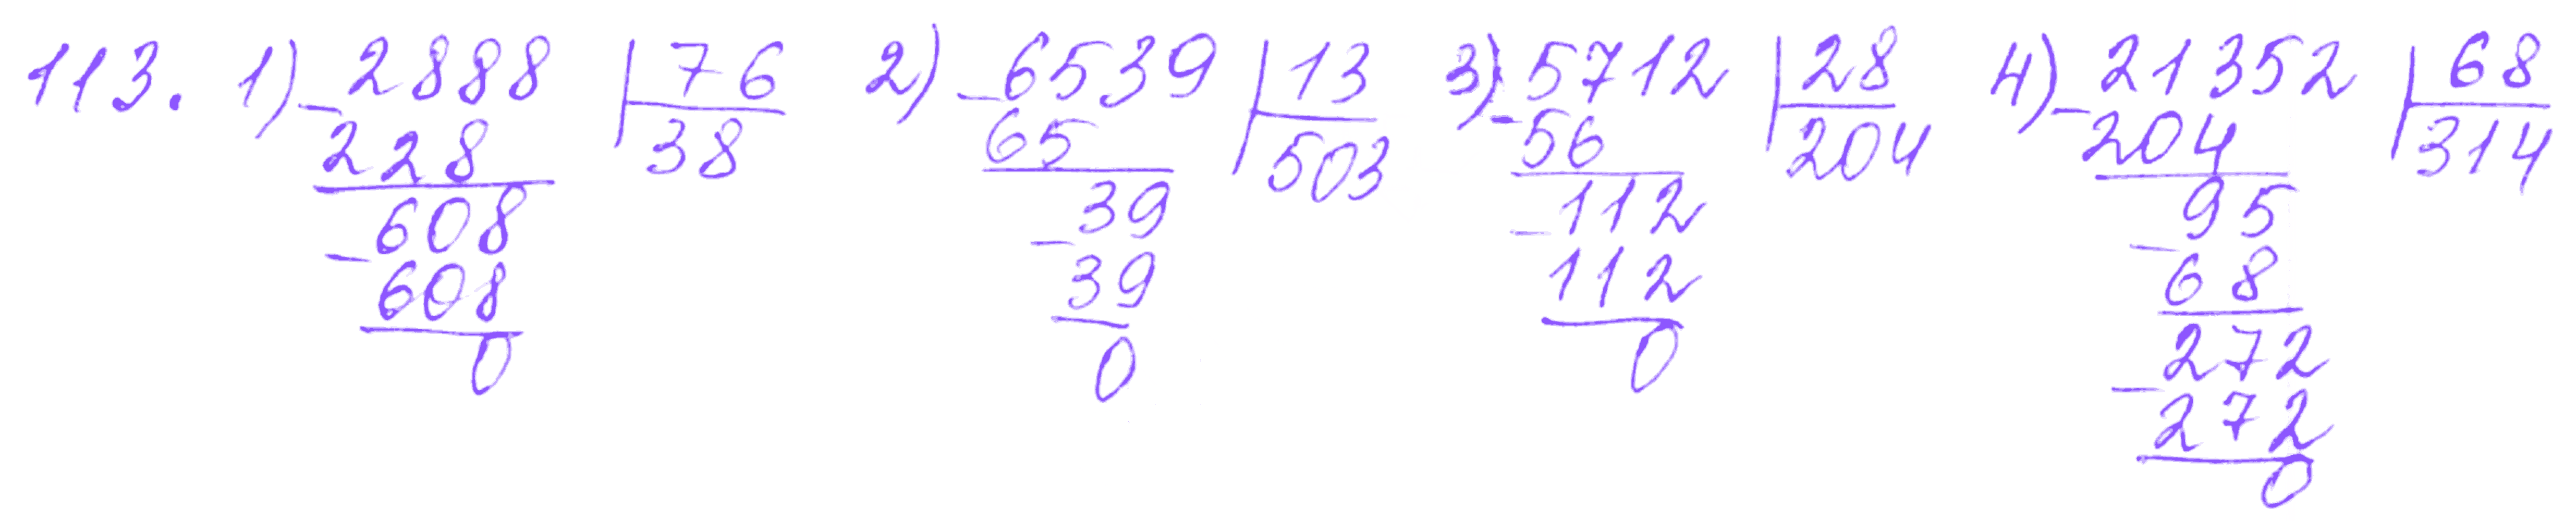 113. 1) 2888 | 76 2) 6539 | 13 3) 5712 | 28 4) 21352 | 68
228 38 65 503 56 204 204 314
608 39 112 95
608 39 112 68
0 0 0 272
272
0